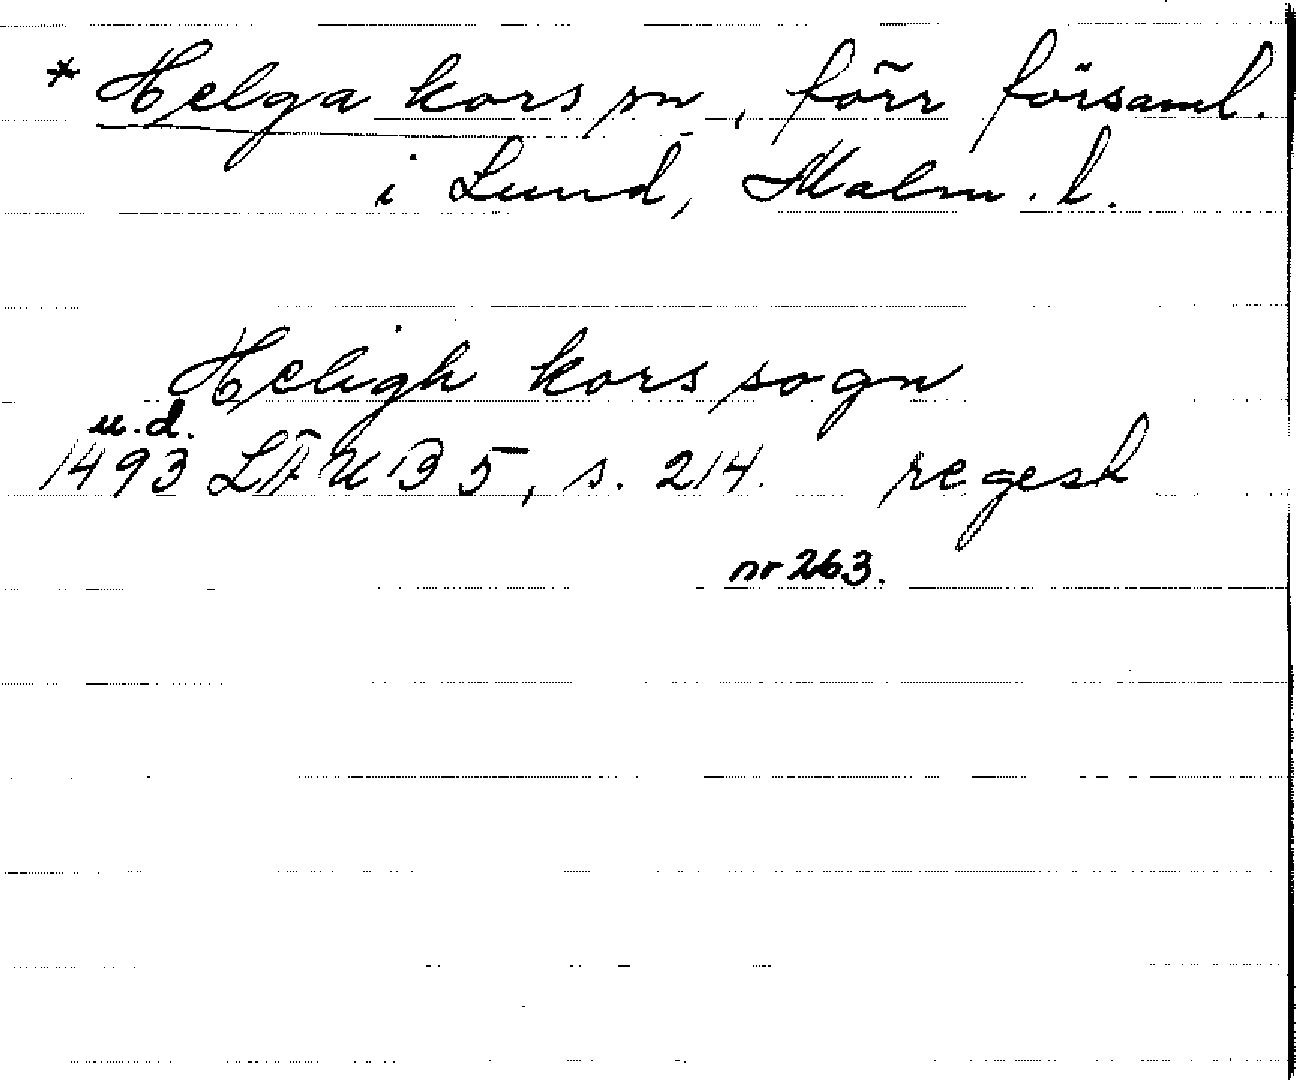 * Helga kors sn, förr församl.
i Lund, Malm. l.
Heligh kors sogn
u.d.
1493 LÄUB 5, s. 214. regest
nr 263.